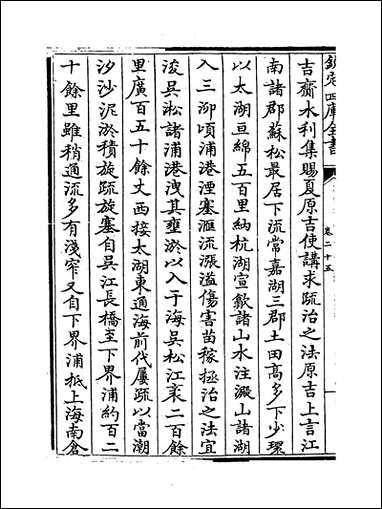 欽定四庫全書
卷二十五
吉齎水利集賜夏原吉使講求疏治之法原吉上言江
南諸郡蘇松最居下流常嘉湖三郡土田高多下少環
以太湖亘綿五百里納杭湖宣歙諸山水注澱山諸湖
入三泖頃浦港湮塞滙流漲溢傷害苗稼拯治之法宜
浚吳淞諸浦港洩其壅淤以入于海吳松江袤二百餘
里廣百五十餘丈西接太湖東通海前代屢疏以當潮
汐沙泥淤積旋疏旋塞自吳江長橋至下界浦約百二
十餘里雖稍通流多有淺窄又自下界浦抵上海南倉